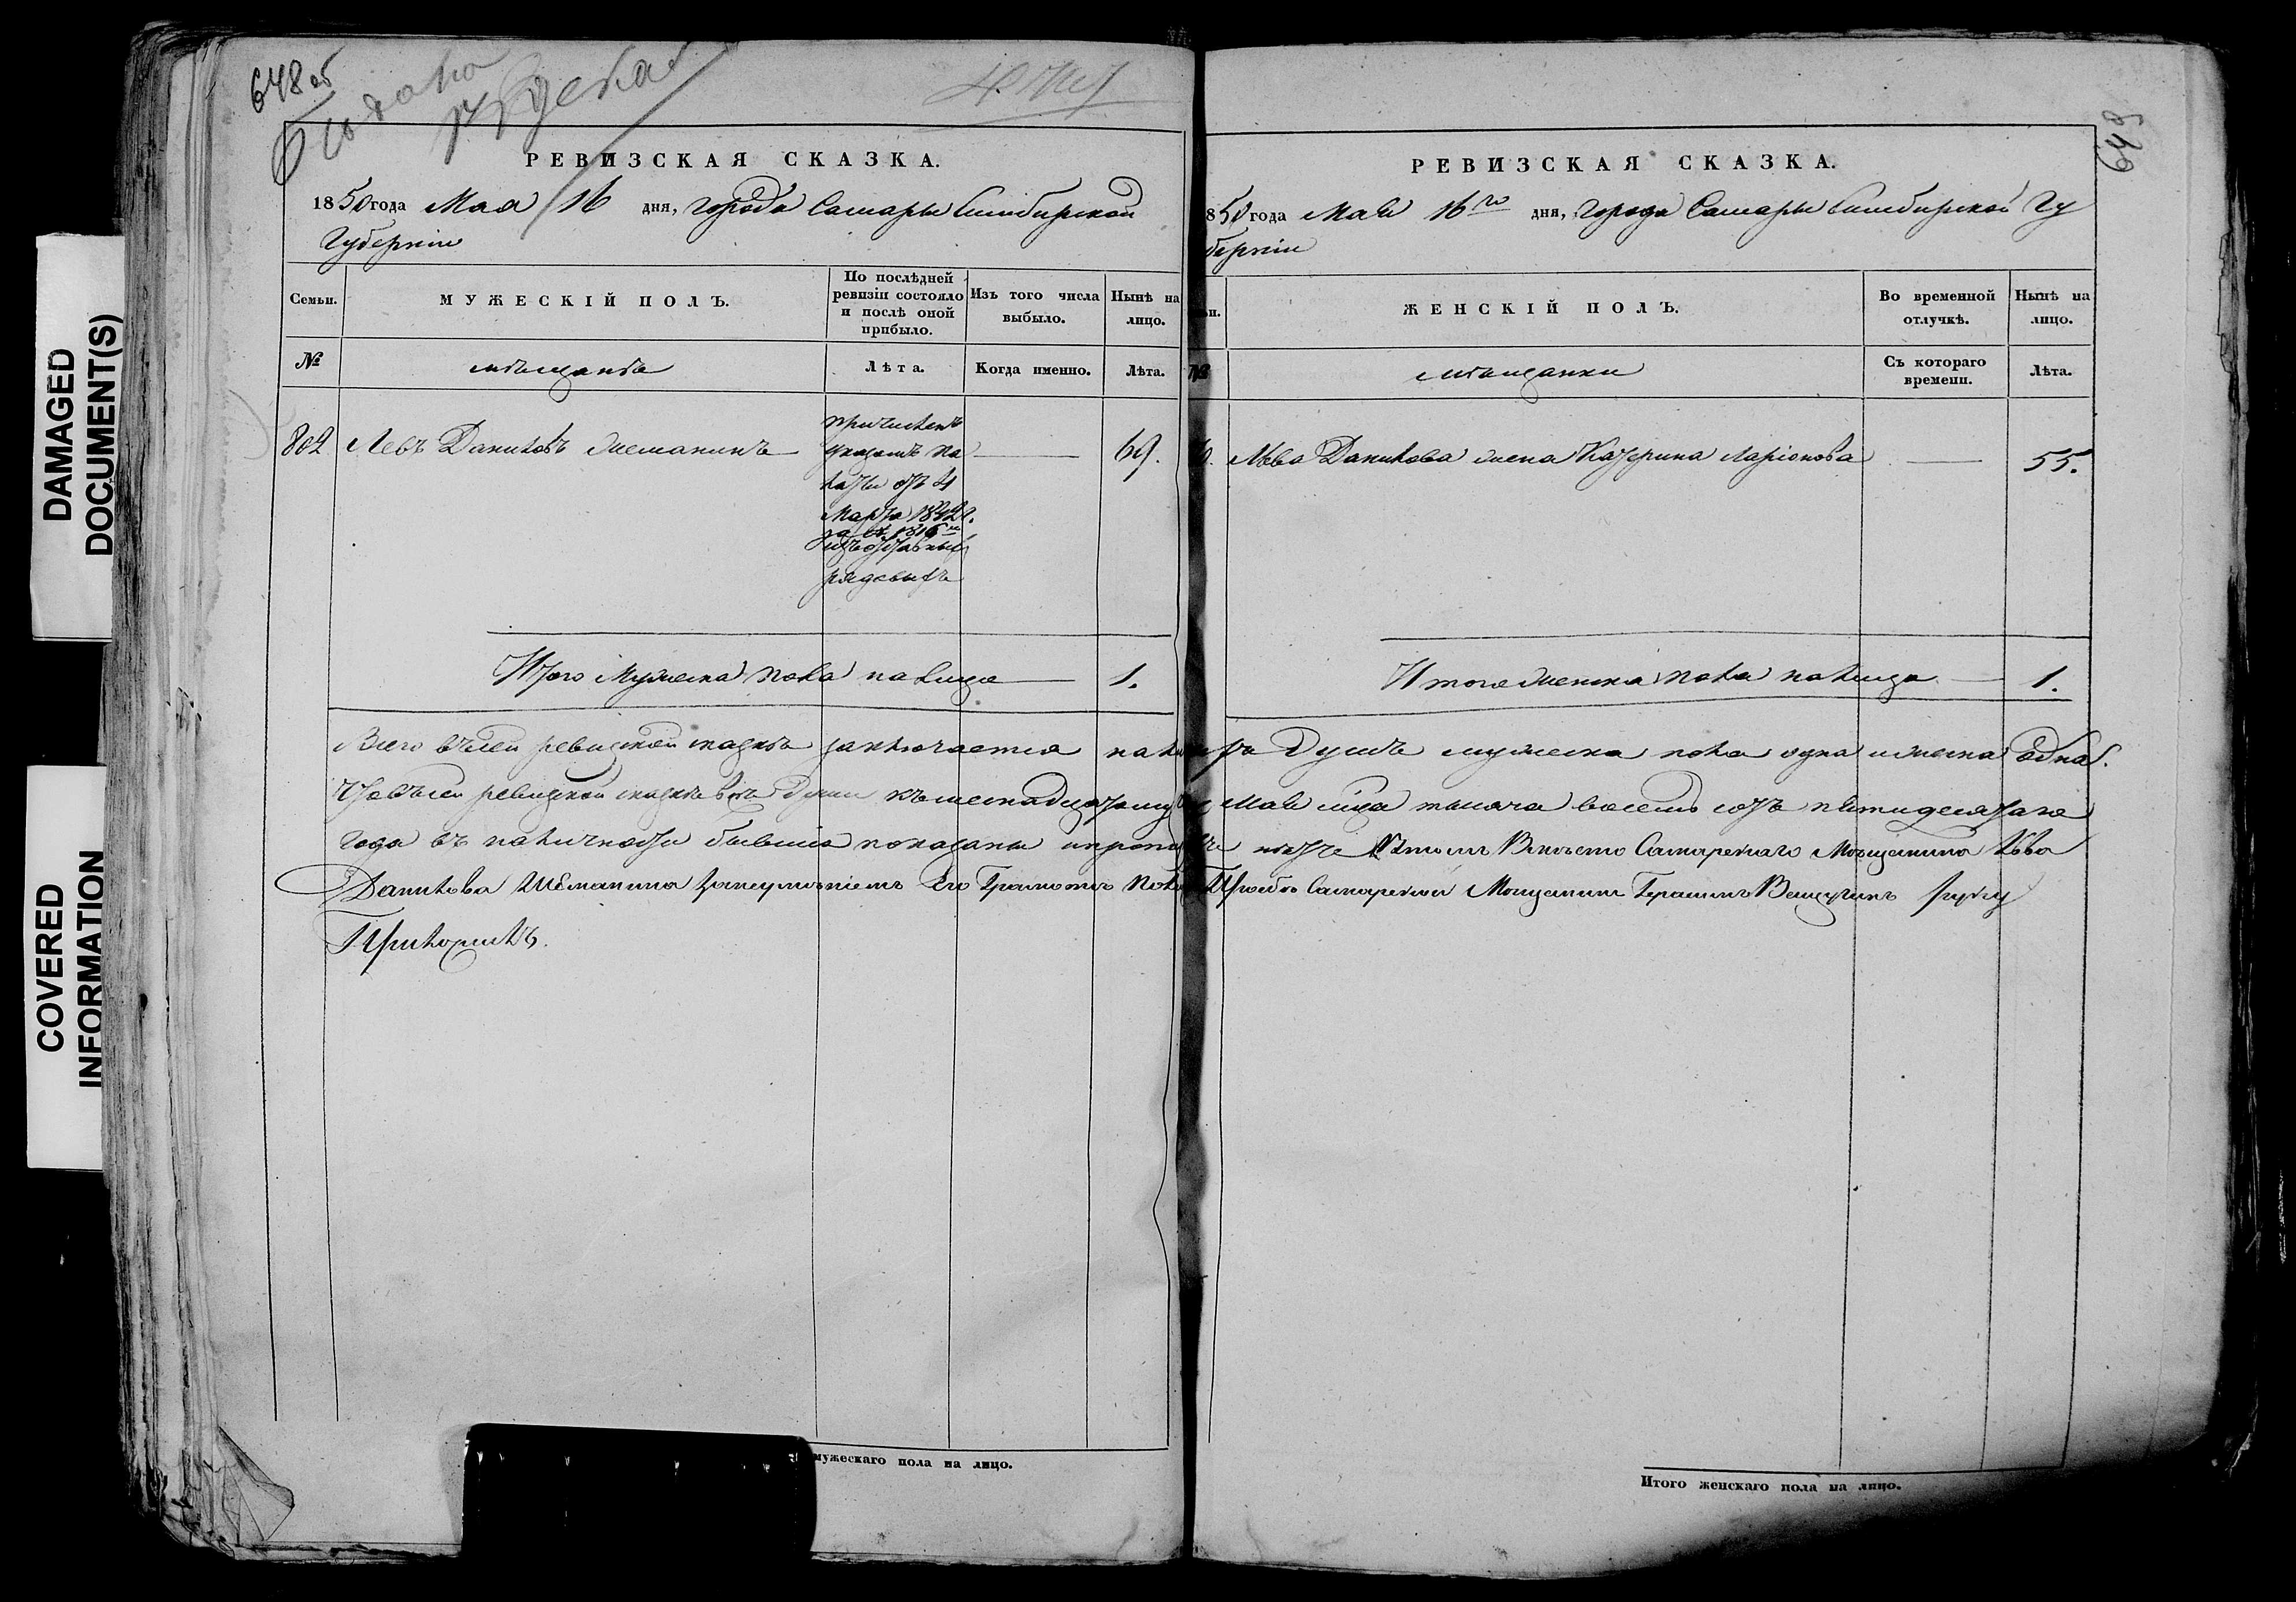 DAMAGED
DOCUMENT(S)
COVERED
INFORMATION
648 об
РЕВИЗСКАЯ СКАЗКА.
1850 года Мая 16 дня, города Самары Симбирской
Губернiи
Семьи.
МУЖЕСКIЙ ПОЛЪ.
По послѣдней ревизiи состояло и послѣ оной прибыло.
Изъ того числа выбыло.
Нынѣ на лицо.
№
мѣщанѣ
Лѣта.
Когда именно.
Лѣта.
802 Левъ Даниловъ 69.
причисленъ
указомъ па
латы отъ 4
Марта 184
за № 1316
изъ отставныхъ
рядовыхъ
Итого мужеска пола на лицо 1.
РЕВИЗСКАЯ СКАЗКА.
850 года Мая 16го дня, города Самары Симбирской Гу
бернiи
ЖЕНСКIЙ ПОЛЪ.
Во временной отлучкѣ.
Нынѣ на лицо.
№
мѣщанки
Съ котораго времени.
Лѣта.
Льва Данилова жена Катерина Ларiонова 55.
Итого женска пола на лицо 1.
Всего въ сей ревизской сказкѣ заключается на лицо душъ мужеска пола одна и женска одна.
Что въ сей ревизской сказкѣ всѣ души къ шестнадцатому мая мѣца тысяча восемь сотъ пятидесятаго
года въ наличности бывшiе показаны и прописныхъ нѣтъ въ томъ Вмѣсто Самарскаго Мѣщанина Льва
Данилова за неумѣнiемъ Его Грамоте по Прозбѣ Самарской Мещанинъ Герасимъ руку
Приложилъ.
649
мужескаго пола на лицо.
Итого женскаго пола на лицо.